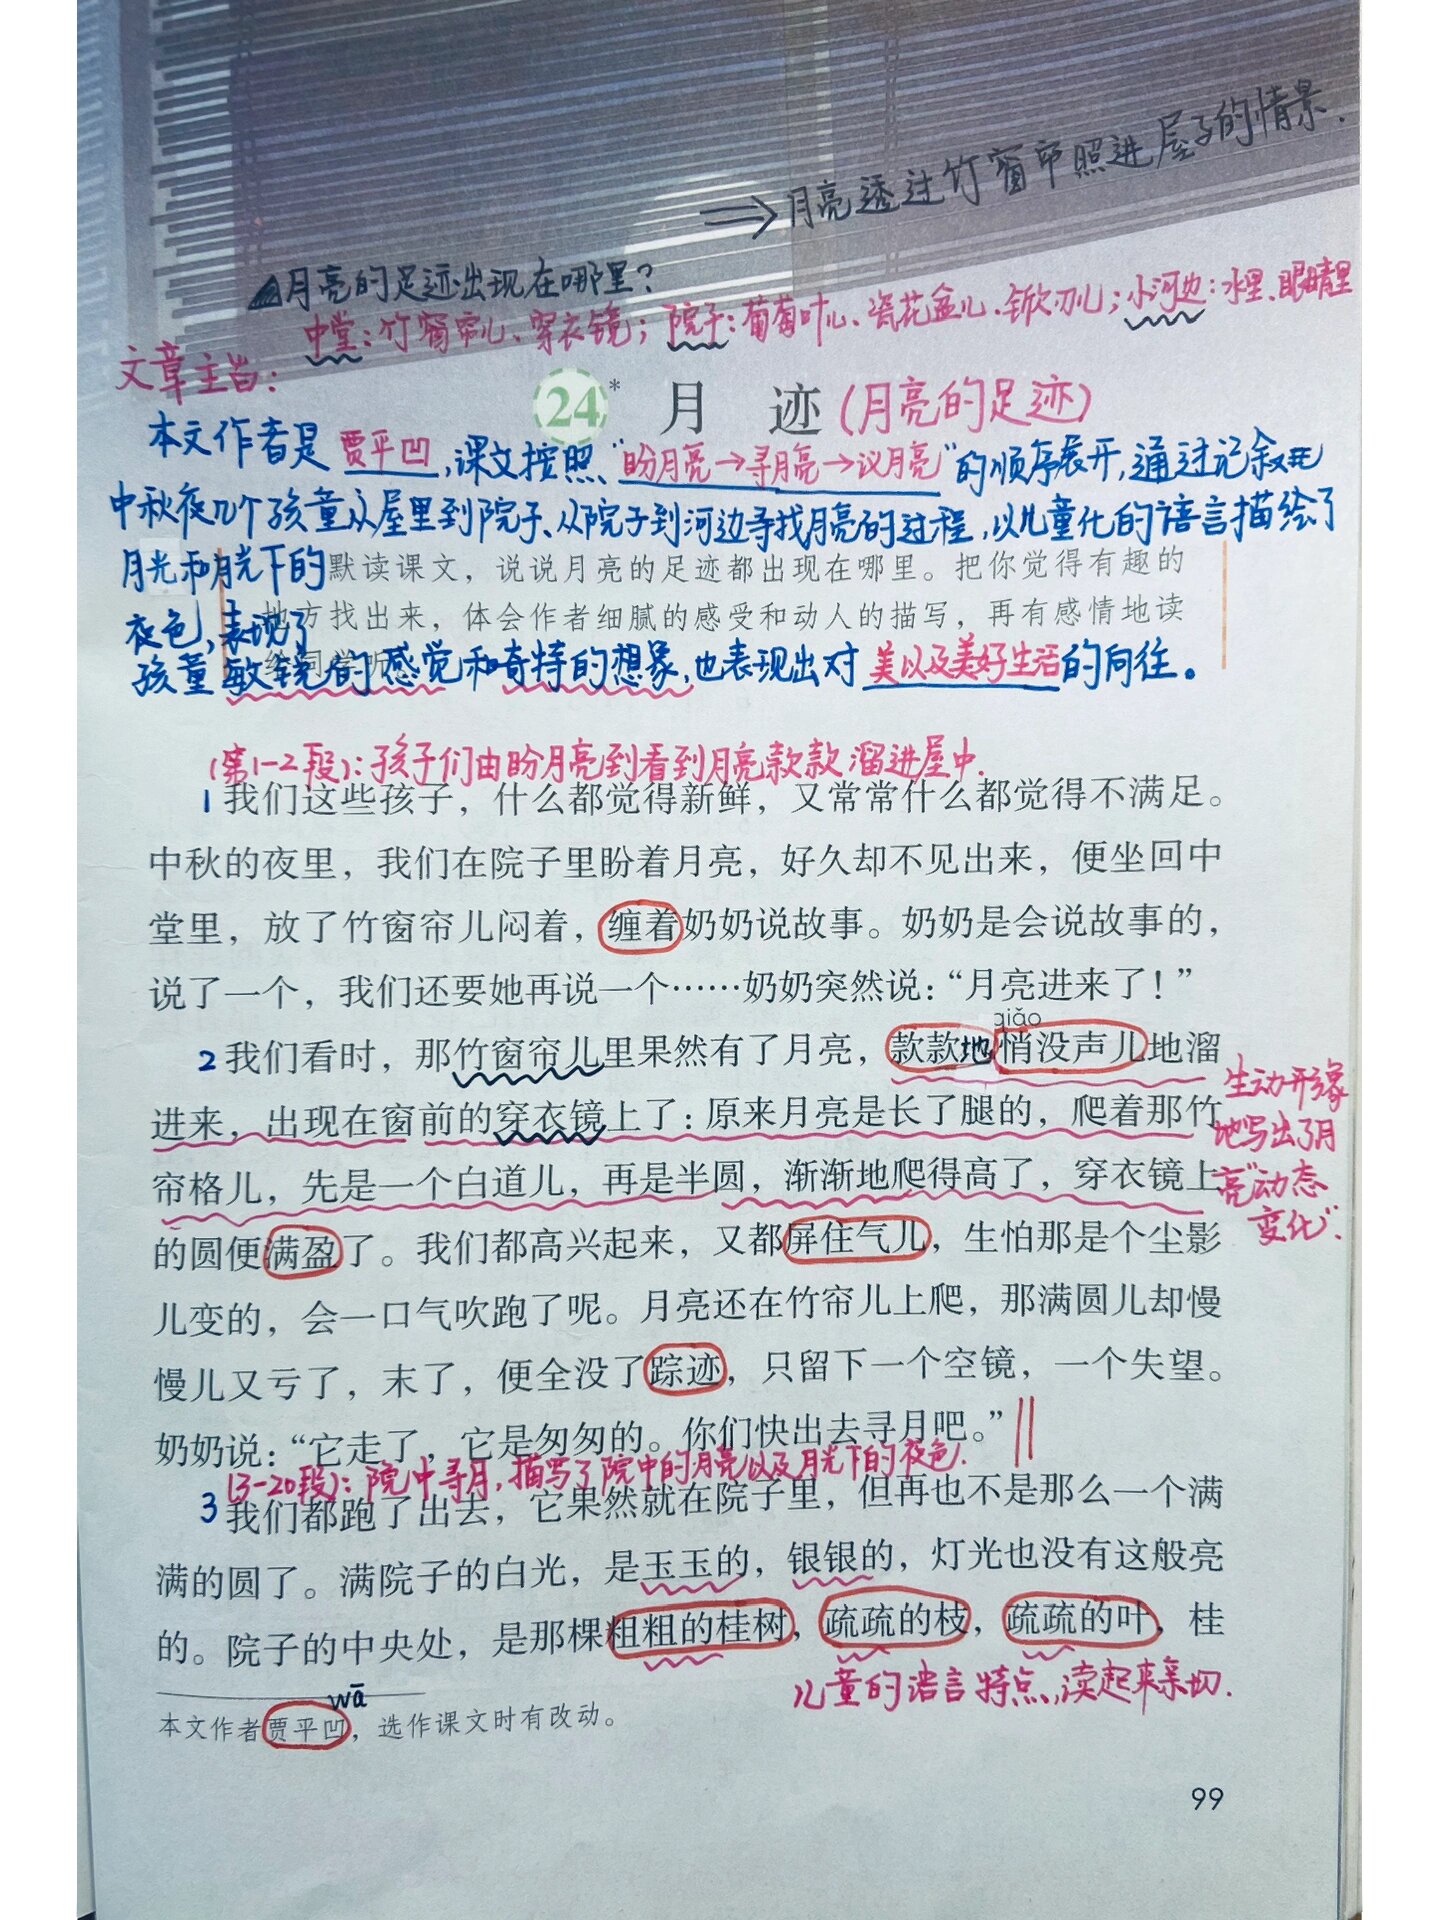 ⇒月亮透过竹窗帘照进屋子的情景.
月亮的足迹出现在哪里?
中堂:竹窗帘儿、穿衣镜;院子:葡萄叶儿、瓷花盆儿、锨刃儿;小河边:水里、眼睛里
文章主旨:
24* 月 迹(月亮的足迹)
本文作者是贾平凹,课文按照"盼月亮→寻月亮→议月亮"的顺序展开,通过记叙
中秋夜几个孩童从屋里到院子、从院子到河边寻找月亮的过程,以儿童化的语言描绘了
月光和月光下的
默读课文，说说月亮的足迹都出现在哪里。把你觉得有趣的
地方找出来，体会作者细腻的感受和动人的描写，再有感情地读
给同学听
夜色,表现了
孩童敏锐的感觉和奇特的想象,也表现出对美以及美好生活的向往。
(第1-2段):孩子们由盼月亮到看到月亮款款溜进屋中.
1 我们这些孩子，什么都觉得新鲜，又常常什么都觉得不满足。
中秋的夜里，我们在院子里盼着月亮，好久却不见出来，便坐回中
堂里，放了竹窗帘儿闷着，缠着奶奶说故事。奶奶是会说故事的，
说了一个，我们还要她再说一个……奶奶突然说：“月亮进来了！”
qiǎo
2 我们看时，那竹窗帘儿里果然有了月亮，款款地悄没声儿地溜
进来，出现在窗前的穿衣镜上了：原来月亮是长了腿的，爬着那竹
帘格儿，先是一个白道儿，再是半圆，渐渐地爬得高了，穿衣镜上
的圆便满盈了。我们都高兴起来，又都屏住气儿，生怕那是个尘影
儿变的，会一口气吹跑了呢。月亮还在竹帘儿上爬，那满圆儿却慢
慢儿又亏了，末了，便全没了踪迹，只留下一个空镜，一个失望。
奶奶说：“它走了，它是匆匆的。你们快出去寻月吧。”
生动形象
地写出了月
亮"动态
变化".
(3-20段):院中寻月,描写了院中的月亮以及月光下的夜色.
3 我们都跑了出去，它果然就在院子里，但再也不是那么一个满
满的圆了。满院子的白光，是玉玉的，银银的，灯光也没有这般亮
的。院子的中央处，是那棵粗粗的桂树，疏疏的枝，疏疏的叶，桂
儿童的语言特点,读起来亲切.
wā
本文作者贾平凹，选作课文时有改动。
99